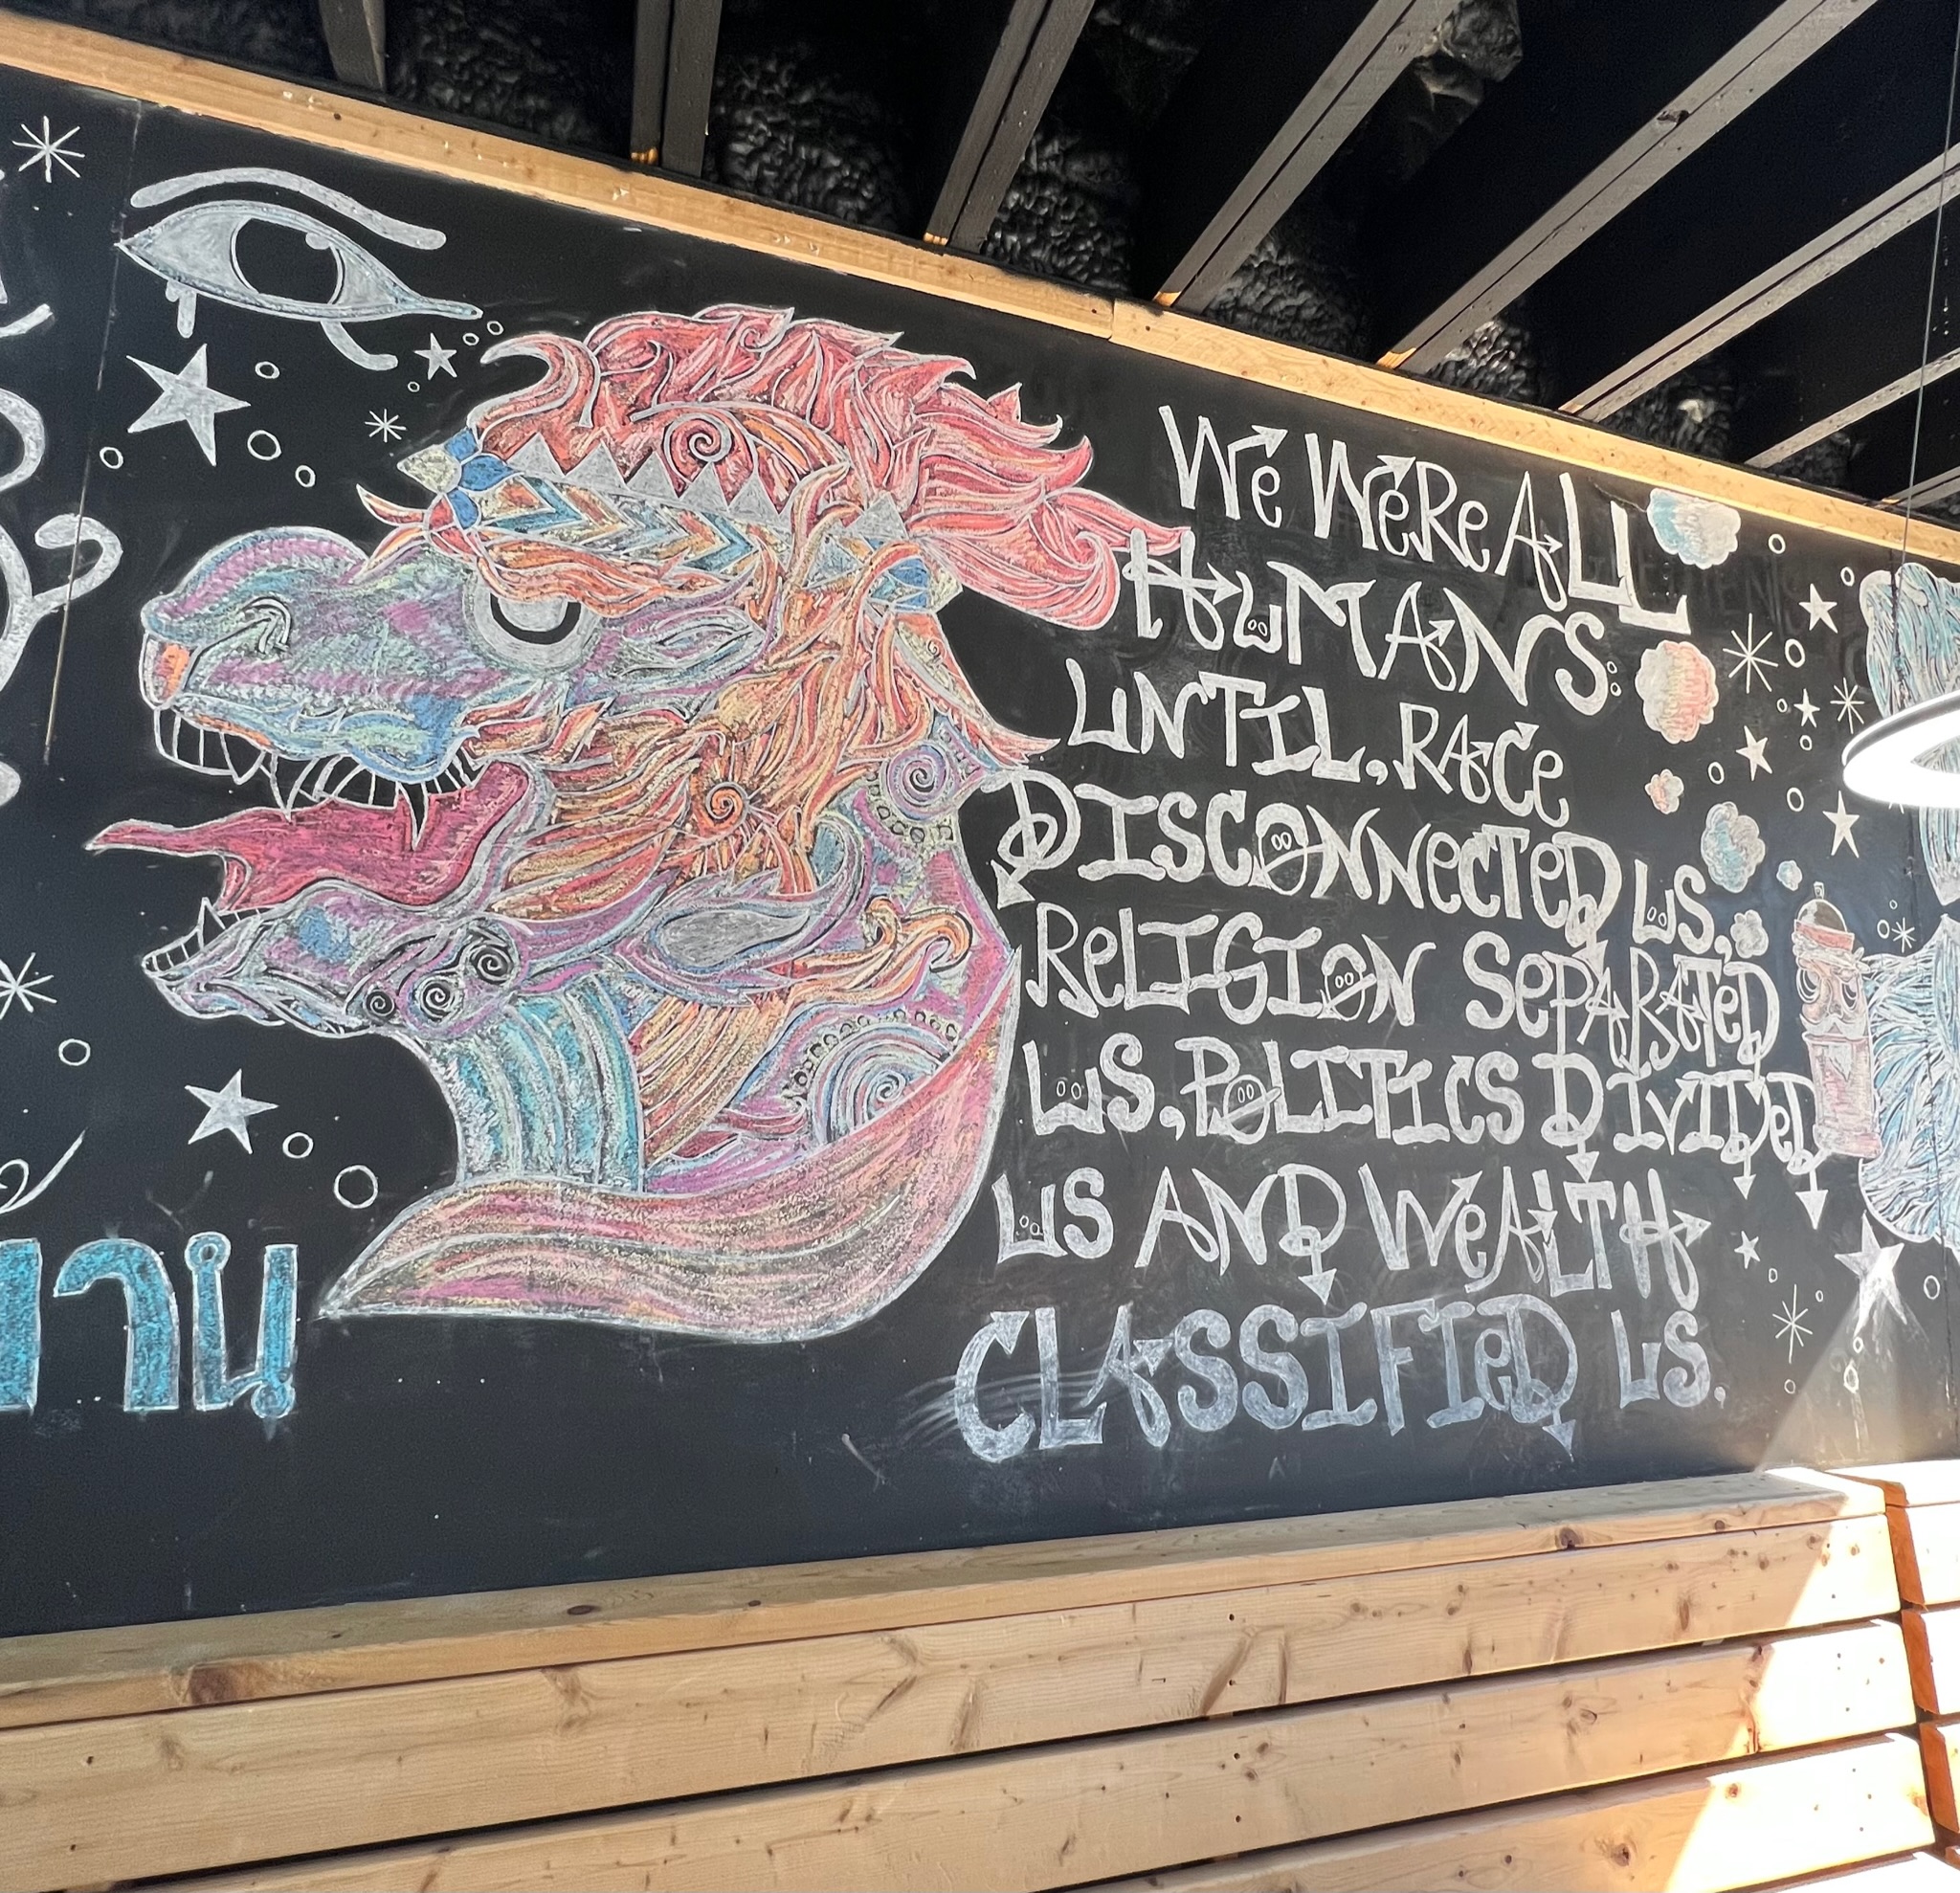 We WeRe ALL
HuMANS
uNTIL, RAce
DISCONNecTeD uS,
ReLIGION SePARATeD
uS, POLITICS DIVIDeD
uS AND WeALTH
CLASSIFIeD uS.
าน